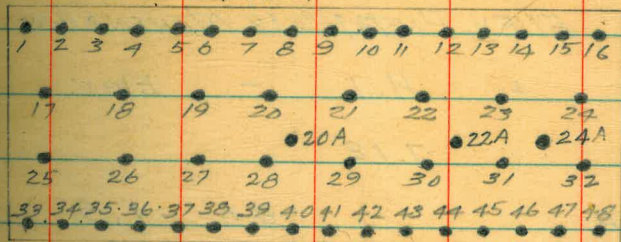 1 2 3 4 5 6 7 8 9 10 11 12 13 14 15 16
17 18 19 20 21 22 23 24
20A 22A 24A
25 26 27 28 29 30 31 32
33 34 35 36 37 38 39 40 41 42 43 44 45 46 47 48